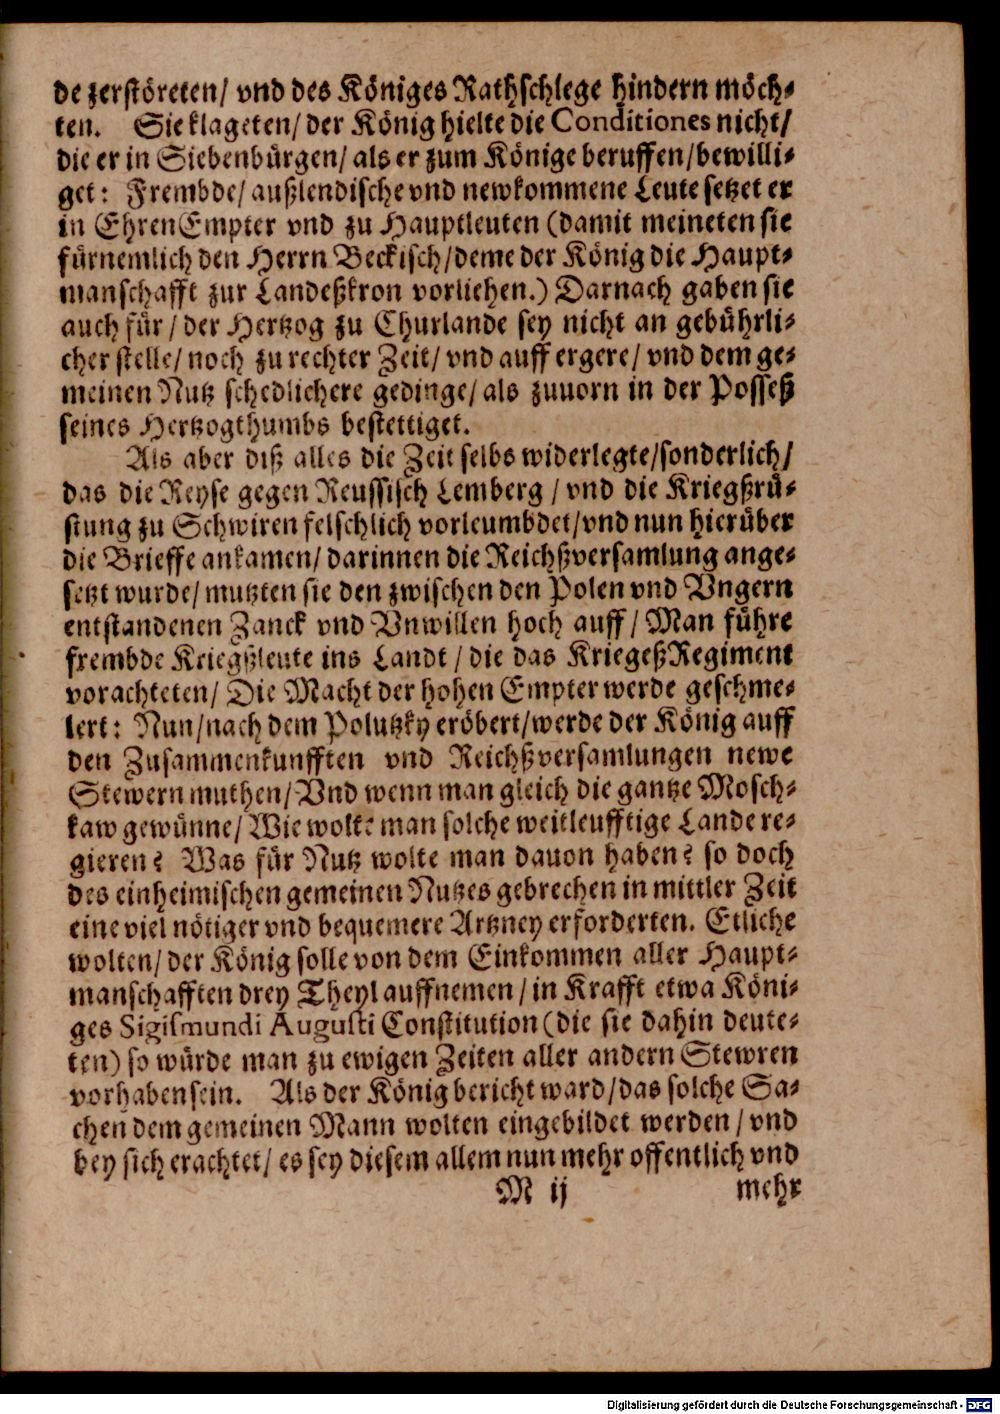 de zerstöreten/ vnd des Königes Rathschlege hindern möch-
ten. Sie klageten/ der König hielte die Conditiones nicht/
die er in Siebenbürgen/ als er zum Könige beruffen/ bewilli-
get: Frembde/ außlendische vnd newkommene Leute setzet er
in EhrenEmpter vnd zu Hauptleuten (damit meineten sie
fürnemlich den Herrn Beckisch/ deme der König die Haupt-
manschafft zur Landeßkron vorliehen.) Darnach gaben sie
auch für/ der Hertzog zu Churlande sey nicht an gebührli-
cher stelle/ noch zu rechter Zeit/ vnd auff ergere/ vnd dem ge-
meinen Nutz schedlichere gedinge/ als zuuorn in der Posseß
seines Hertzogthumbs bestettiget.
Als aber diß alles die Zeit selbs widerlegte/ sonderlich/
das die Reyse gegen Reussisch Lemberg / vnd die Kriegßrü-
stung zu Schwiren felschlich vorleumbdet/ vnd nun hierüber
die Brieffe ankamen/ darinnen die Reichßversamlung ange-
setzt wurde/ mutzten sie den zwischen den Polen vnd Vngern
entstandenen Zanck vnd Vnwillen hoch auff/ Man führe
frembde Kriegßleute ins Landt / die das KriegeßRegiment
vorachteten/ Die Macht der hohen Empter werde geschme-
lert: Nun/ nach dem Polutzky eröbert/ werde der König auff
den Zusammenkunfften vnd Reichßversamlungen newe
Stewern muthen/ Vnd wenn man gleich die gantze Mosch-
kaw gewünne/ Wie wolte man solche weitleufftige Lande re-
gieren? Was für Nutz wolte man dauon haben? so doch
des einheimischen gemeinen Nutzes gebrechen in mittler Zeit
eine viel nötiger vnd bequemere Artzney erforderten. Etliche
wolten/ der König solle von dem Einkommen aller Haupt-
manschafften drey Theyl auffnemen / in Krafft etwa Köni-
ges Sigismundi Augusti Constitution (die sie dahin deute-
ten) so würde man zu ewigen Zeiten aller andern Stewren
vorhaben sein. Als der König bericht ward/ das solche Sa-
chen dem gemeinen Mann wolten eingebildet werden / vnd
bey sich erachtet/ es sey diesem allem nun mehr offentlich vnd
M ij mehr
Digitalisierung gefördert durch die Deutsche Forschungsgemeinschaft - DFG